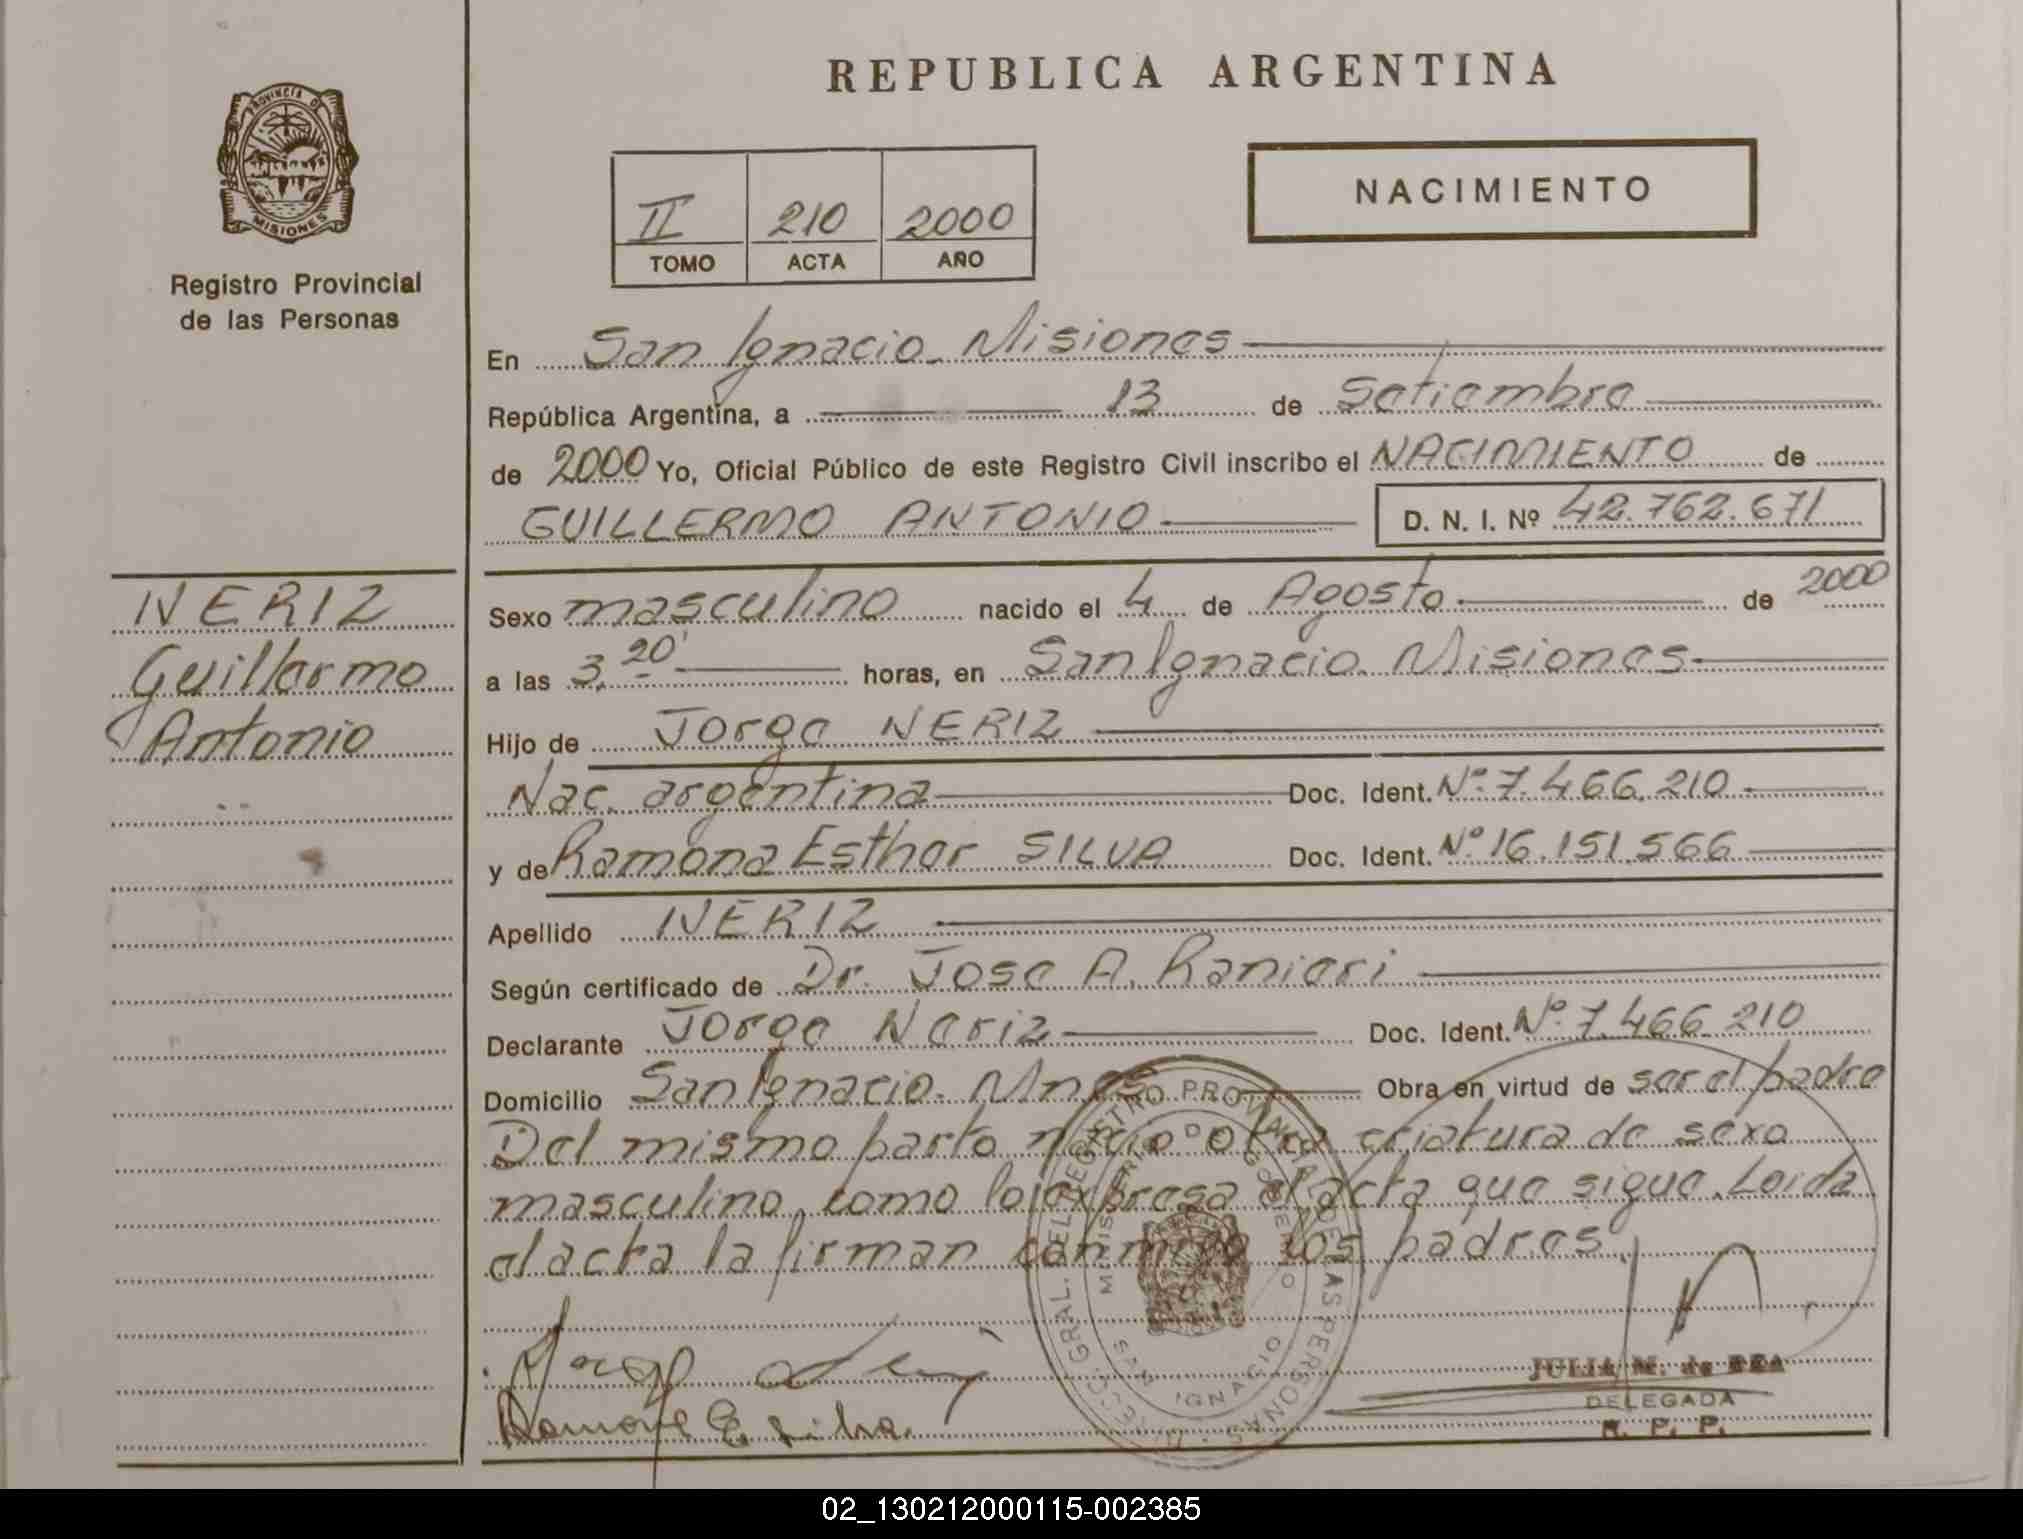 REPUBLICA ARGENTINA
PROVINCIA DE
MISIONES
Registro Provincial
de las Personas
II 210 2000
TOMO ACTA AÑO
NACIMIENTO
En San Ignacio. Misiones
República Argentina, a 13 de Setiembre
de 2000 Yo, Oficial Público de este Registro Civil inscribo el NACIMIENTO de
GUILLERMO ANTONIO D. N. I. Nº 42.762.671
NERIZ
Guillermo
Antonio
Sexo masculino nacido el 4 de Agosto de 2000
a las 3,20' horas, en San Ignacio. Misiones
Hijo de Jorge NERIZ
Nac. argentina Doc. Ident. Nº 7.466.210
y de Ramona Esther SILVA Doc. Ident. Nº 16.151.566
Apellido NERIZ
Según certificado de Dr. Jose A. Ranieri
Declarante Jorge Neriz Doc. Ident. Nº 7.466.210
Domicilio San Ignacio. Mnes Obra en virtud de ser el padre
Del mismo parto nacio otra criatura de sexo
masculino, como lo expresa el acta que sigue. Leida
el acta la firman conmigo los padres.
Ramona E Silva.
DIRECC. GRAL. DEL REGISTRO PROVINCIAL DE LAS PERSONAS
MINISTERIO DE GOBIERNO
SAN IGNACIO
JULIA M. de REA
DELEGADA
R. P. P.
02_130212000115-002385